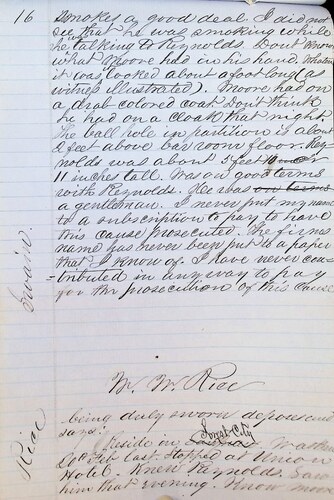 16
Smokes a good deal. I did not
see that he was smoking while
he talking to Reynolds. Dont know
what Moore had in his hand. Whatever
it was looked about a foot long (as
witness illustrated). Moore had on
a drab colored coat. Don't think
he had on a cloak that night.
The ball hole in partition is about
2 feet above bar room floor. Rey
nolds was about 5 feet 10 or
11 inches tall. Was on good terms
with Reynolds. He was on terms
a gentleman. I never put my name
to a subscription to pay to have
this cause prosecuted. The firms
name has never been put to a paper
that I know of. I have never con-
-tributed in any way to pay
for the prosecution of this cause
Swain.
W. W. Rice
being duly sworn deposes and
says:
Reside in Sioux City. Was here
Feb last. Stopped at Union
Hotel. Knew Reynolds. Saw
him that evening. Know moore
Rice